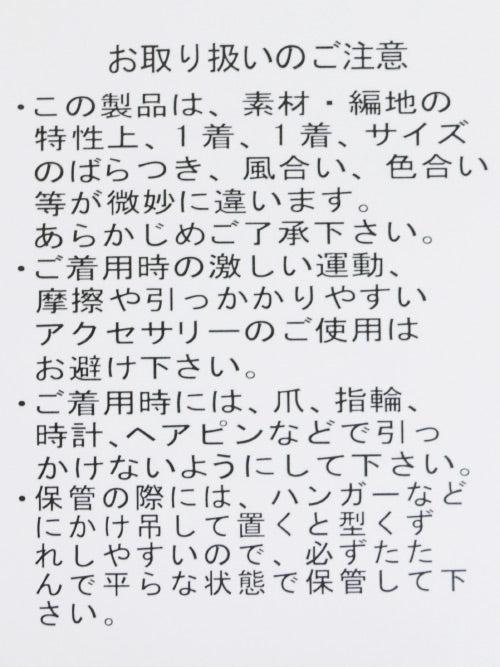 お取り扱いのご注意
・この製品は、素材・編地の
特性上、1着、1着、サイズ
のばらつき、風合い、色合い
等が微妙に違います。
あらかじめご了承下さい。
・ご着用時の激しい運動、
摩擦や引っかかりやすい
アクセサリーのご使用は
お避け下さい。
・ご着用時には、爪、指輪、
時計、ヘアピンなどで引っ
かけないようにして下さい。
・保管の際には、ハンガーなど
にかけ吊して置くと型くず
れしやすいので、必ずたた
んで平らな状態で保管して下
さい。